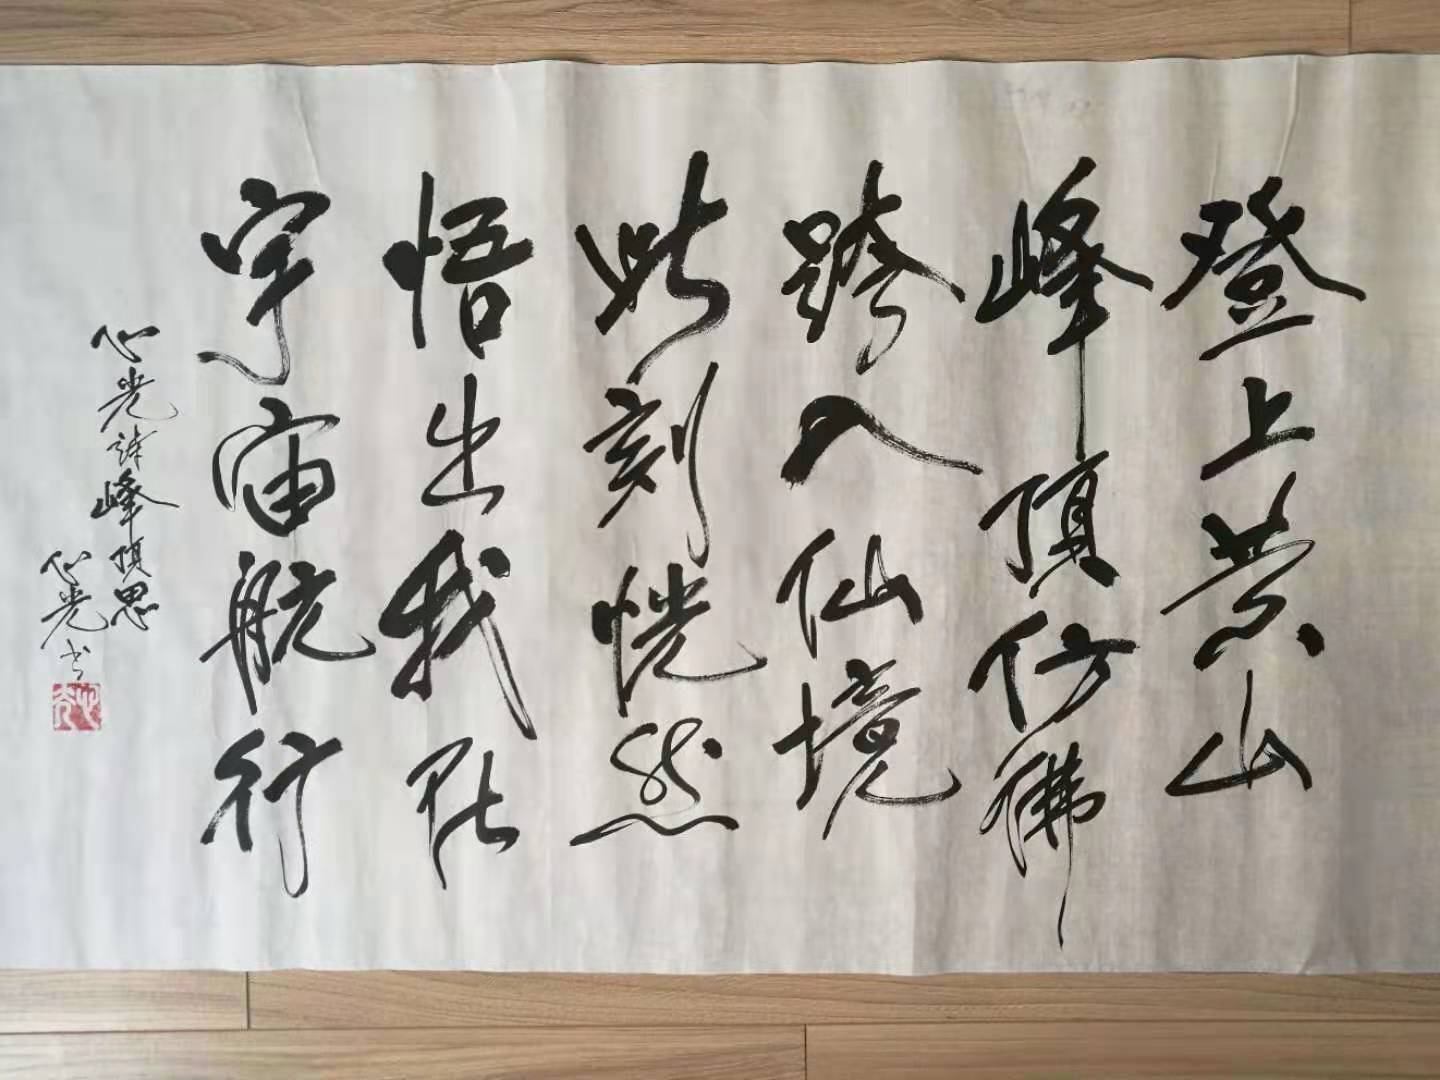 登上黄山
峰顶仿佛
跨入仙境
此刻恍然
悟出我在
宇宙航行
心光诗峰顶思
心光书
心光